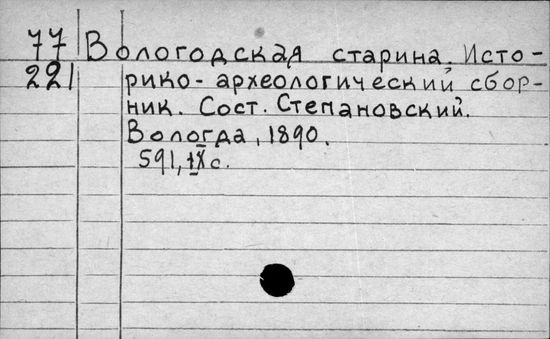 77 Вологодская старина. Исто-
221 рико-археологический сбор-
ник. Сост. Степановский.
Вологда, 1890.
591, IX с.